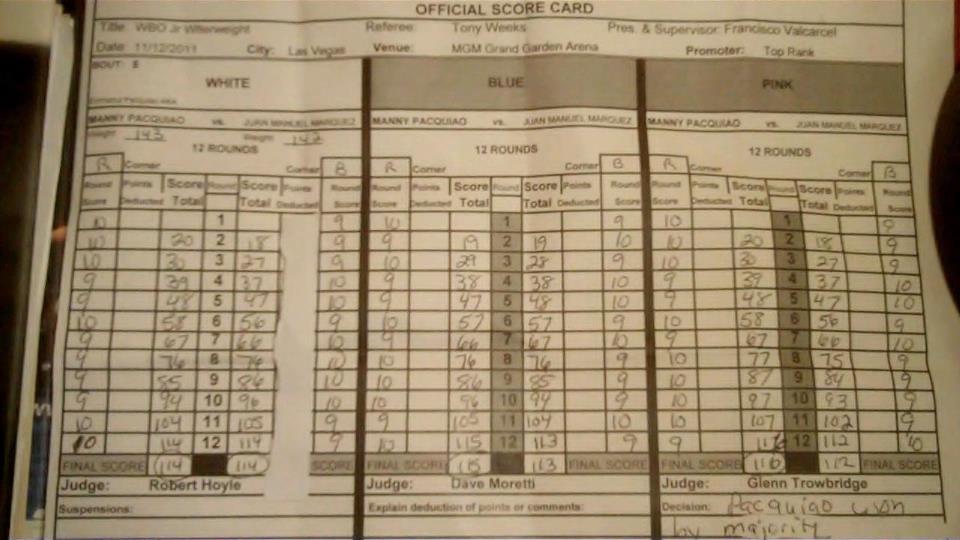 OFFICIAL SCORE CARD
Title: WBO Jr Wlterweight Referee: Tony Weeks Pres. & Supervisor: Francisco Valcarcel
Date: 11/12/2011 City: Las Vegas Venue: MGM Grand Garden Arena Promoter: Top Rank
BOUT: 8
WHITE BLUE PINK
MANNY PACQUIAO vs. JUAN MANUEL MARQUEZ MANNY PACQUIAO vs. JUAN MANUEL MARQUEZ MANNY PACQUIAO vs. JUAN MANUEL MARQUEZ
Weight: 143 Weight: 142
12 ROUNDS 12 ROUNDS 12 ROUNDS
R Corner Corner B R Corner Corner B R Corner Corner B
Round Points Score Round Score Points Round Round Points Score Round Score Points Round Round Points Score Round Score Points Round
Score Deducted Total Total Deducted Score Score Deducted Total Total Deducted Score Score Deducted Total Total Deducted Score
10 1 9 10 1 9 10 1 9
10 20 2 18 9 9 19 2 19 10 10 20 2 18 9
10 30 3 27 9 10 29 3 28 9 10 30 3 27 9
9 39 4 37 10 9 38 4 38 10 9 39 4 37 10
9 48 5 47 10 9 47 5 48 10 9 48 5 47 10
10 58 6 56 9 10 57 6 57 9 10 58 6 56 9
9 67 7 66 10 9 66 7 67 10 9 67 7 66 10
9 76 8 76 10 10 76 8 76 9 10 77 8 75 9
9 85 9 86 10 10 86 9 85 9 10 87 9 84 9
9 94 10 96 10 10 96 10 94 9 10 97 10 93 9
10 104 11 105 9 9 105 11 104 10 10 107 11 102 9
10 114 12 114 9 10 115 12 113 9 9 116 12 112 10
FINAL SCORE 114 114 SCORE FINAL SCORE 115 113 FINAL SCORE FINAL SCORE 116 112 FINAL SCORE
Judge: Robert Hoyle Judge: Dave Moretti Judge: Glenn Trowbridge
Suspensions: Explain deduction of points or comments: Decision: Pacquiao won
by majority